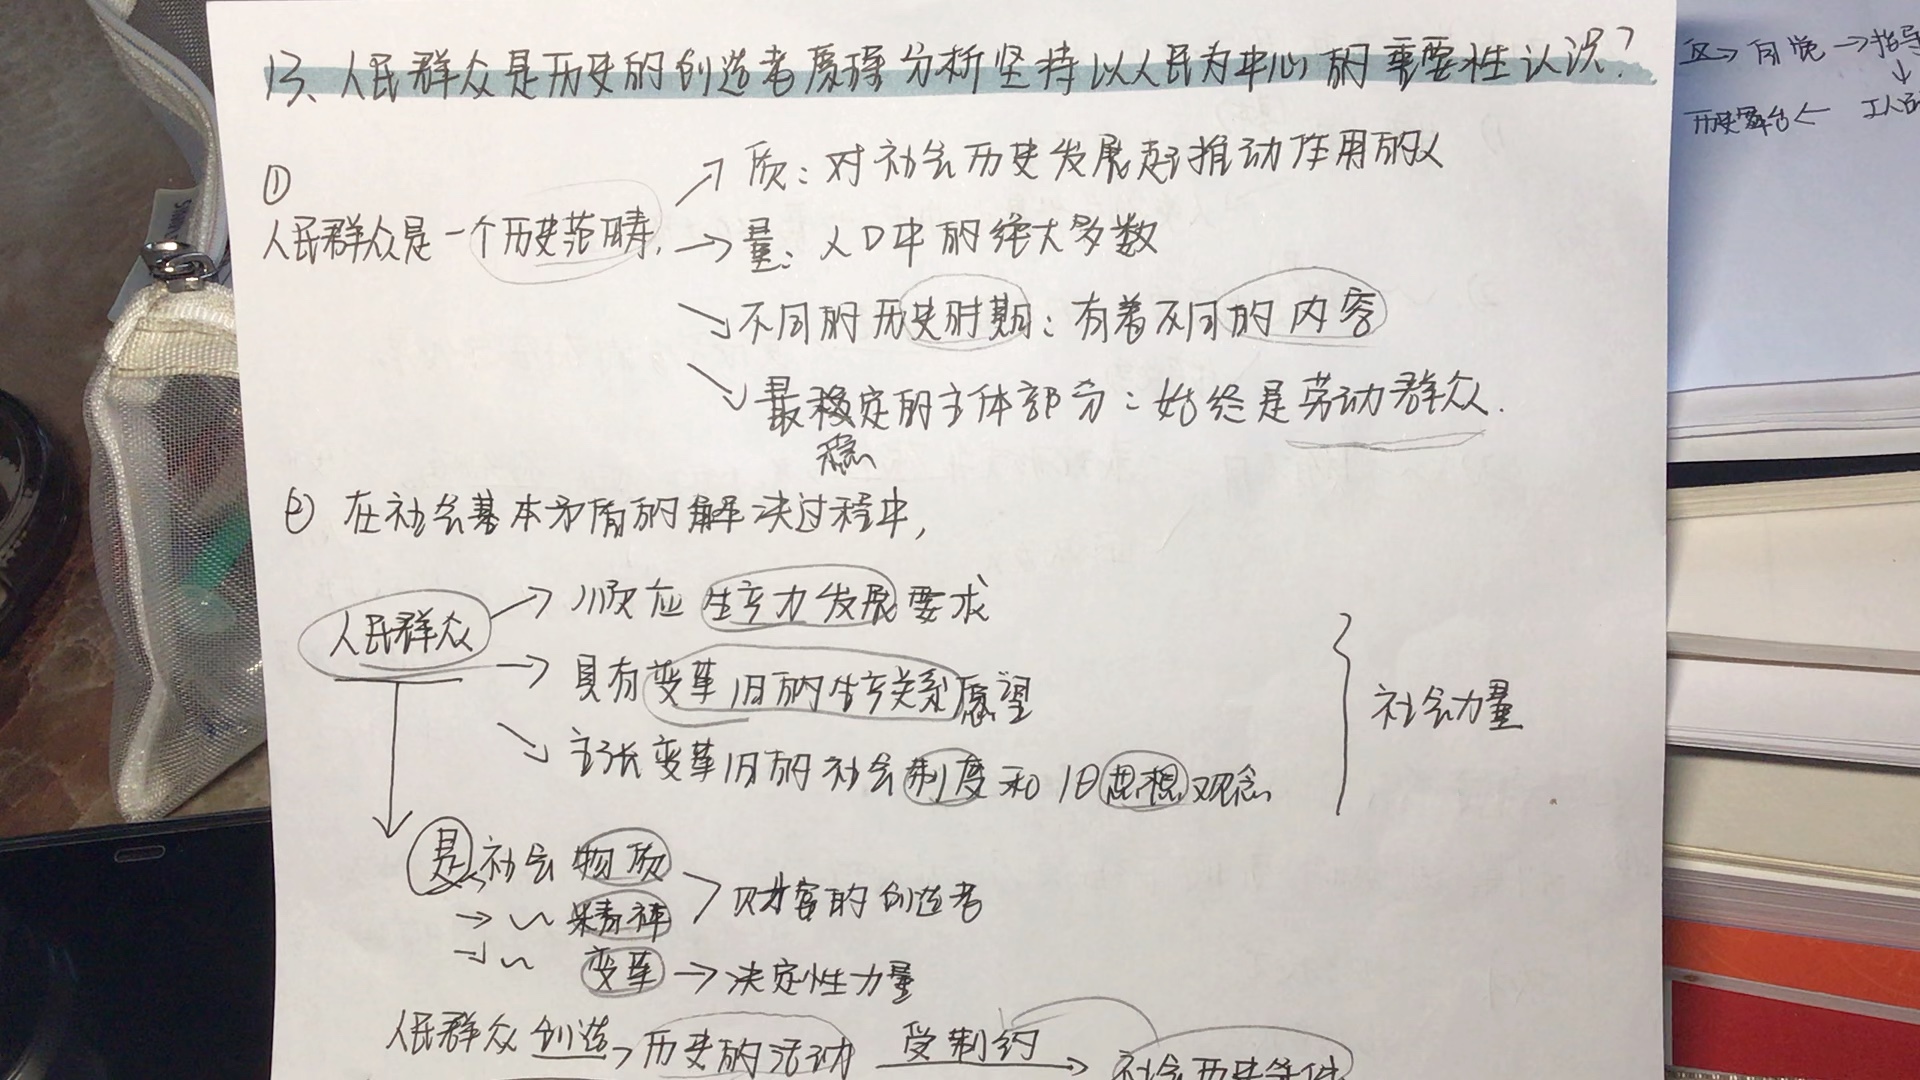 13、人民群众是历史的创造者原理分析坚持以人民为中心的重要性认识?
①
人民群众是一个历史范畴,
↗ 质:对社会历史发展起推动作用的人
→ 量:人口中的绝大多数
↘ 不同的历史时期:有着不同的内容
↘ 最稳定的主体部分:始终是劳动群众.
稳
② 在社会基本矛盾的解决过程中,
人民群众 → 顺应生产力发展要求
→ 具有变革旧的生产关系愿望
↘ 主张变革旧的社会制度和旧思想观念
} 社会力量
是社会物质
→ 〜 精神 > 财富的创造者
→ 〜 变革 → 决定性力量
人民群众创造→历史的活动 受制约→ 社会历史条件
→ 自觉 → 指导
↓
历史舞台 ← 工人